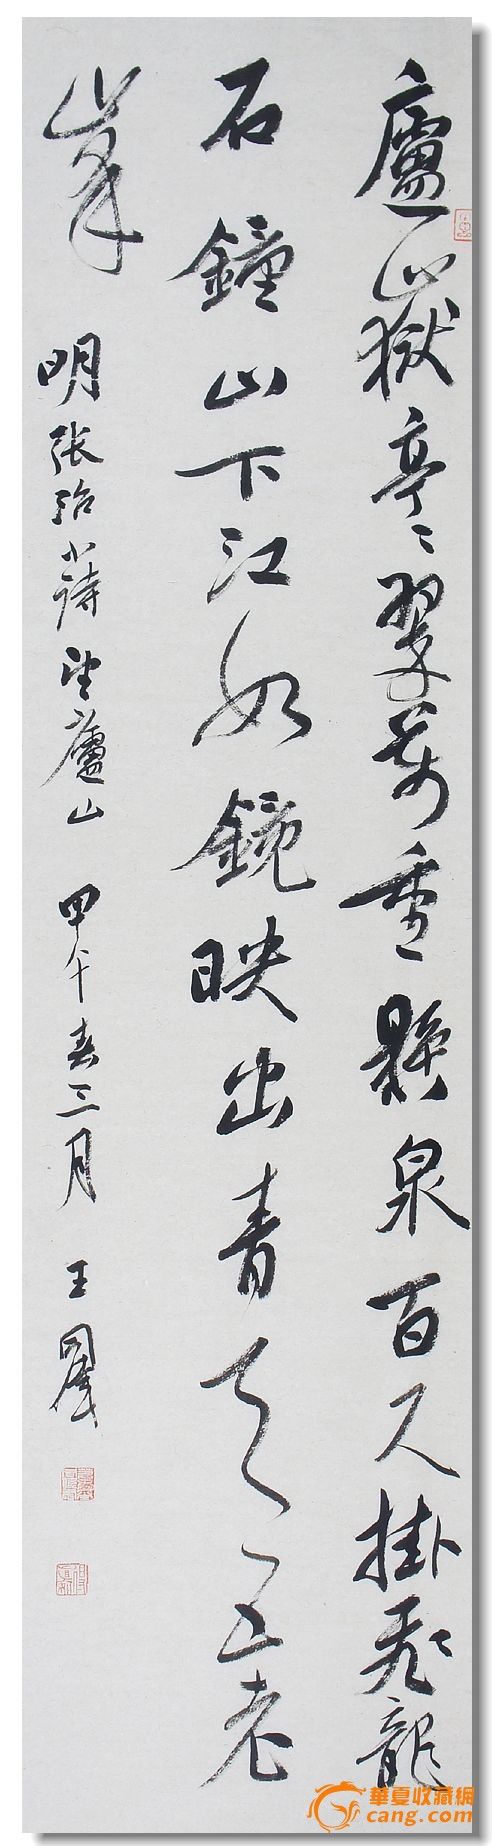 廬山嶽亭亭翠萬重懸泉百尺掛飛龍
石鐘山下江如鏡映出青天五老
峯
明張治小詩望廬山 甲午春三月 王
華夏收藏網
cang.com